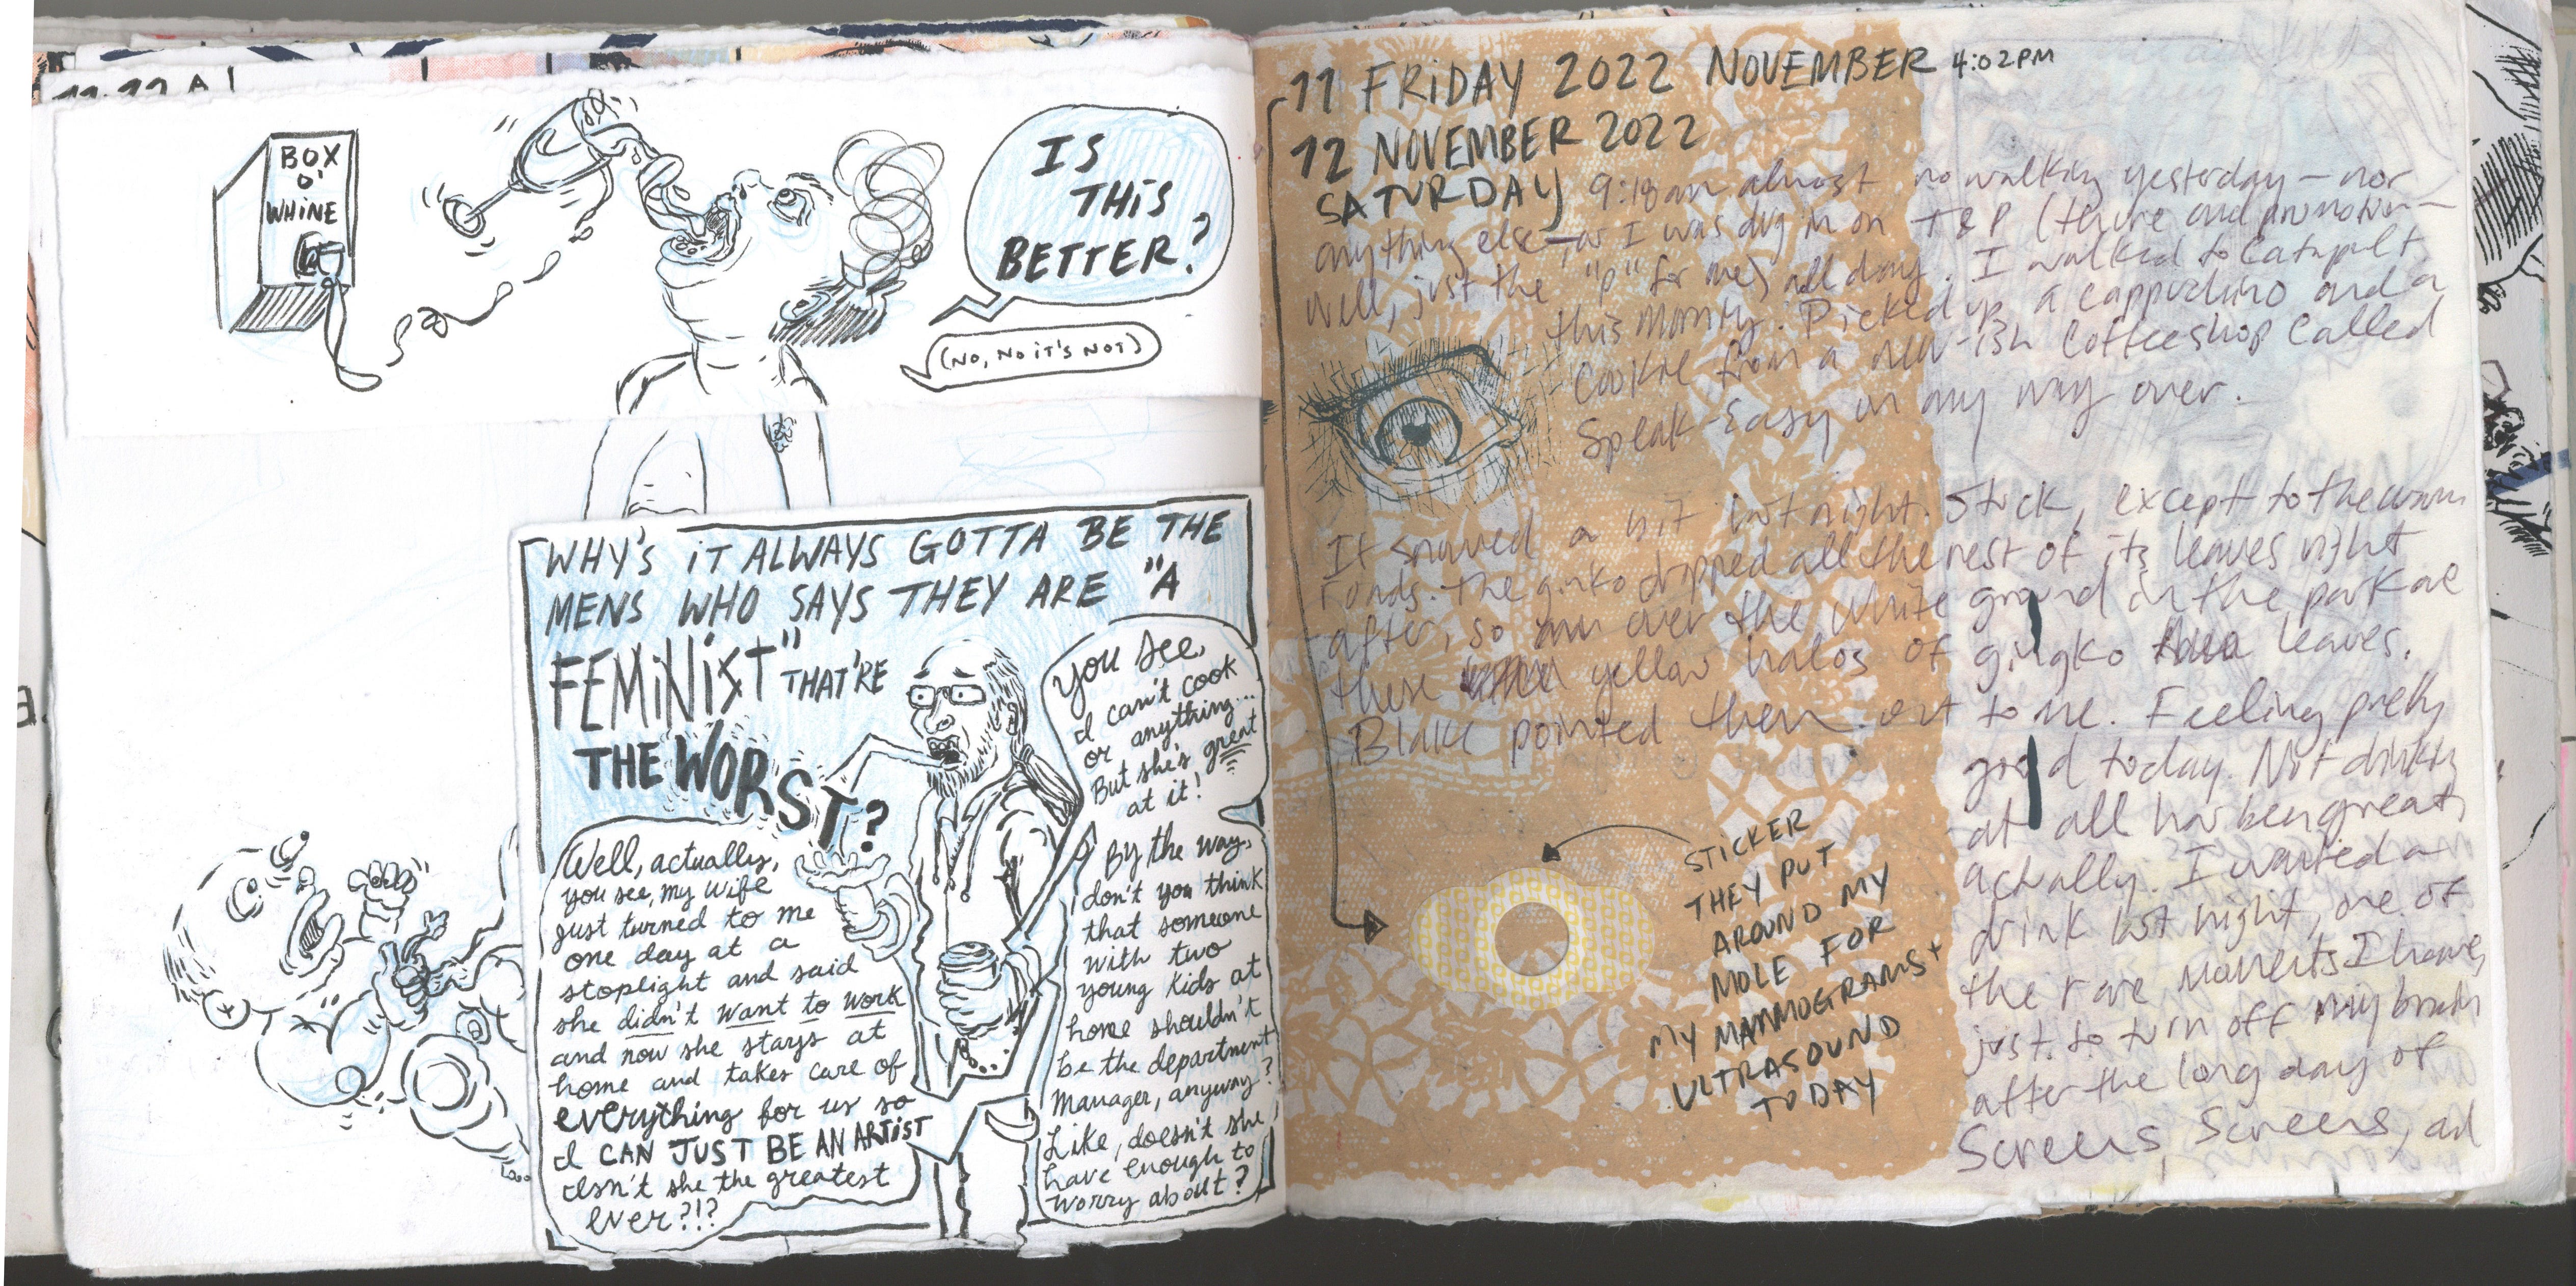 BOX
O'
WHINE
IS
THIS
BETTER?
(NO, NO IT'S NOT)
WHY'S IT ALWAYS GOTTA BE THE
MENS WHO SAYS THEY ARE "A
FEMINIST" THAT'RE
THE WORST?
Well, actually,
you see, my wife
just turned to me
one day at a
stoplight and said
she didn't want to work
and now she stays at
home and takes care of
everything for us so
I CAN JUST BE AN ARTIST
Isn't she the greatest
ever?!?
You see,
I can't cook
or anything...
But she's great
at it!
By the way,
don't you think
that someone
with two
young kids at
home shouldn't
be the department
manager, anyway?
Like, doesn't she
have enough to
worry about?
11 FRIDAY 2022 NOVEMBER 4:02PM
12 NOVEMBER 2022
SATURDAY 9:18am almost no walking yesterday – nor
anything else – as I was dug in on T&P (tenure and promotion –
well, just the "p" for me) all day. I walked to Catapult
this morning. Picked up a cappuchino and a
cookie from a new-ish coffeeshop called
Speak Easy on my way over.
It snowed a bit last night. Stuck, except to the warm
roads. The ginko dropped all the rest of its leaves right
after, so now over the white ground in the park are
these yellow halos of gingko leaves.
Blake pointed them out to me. Feeling pretty
good today. Not drinking
at all has been great,
actually. I wanted a
drink last night, one of
the rare moments I have,
just to turn off my brain
after the long day of
screens, screens, and
STICKER
THEY PUT
AROUND MY
MOLE FOR
MY MAMMOGRAMS +
ULTRASOUND
TODAY